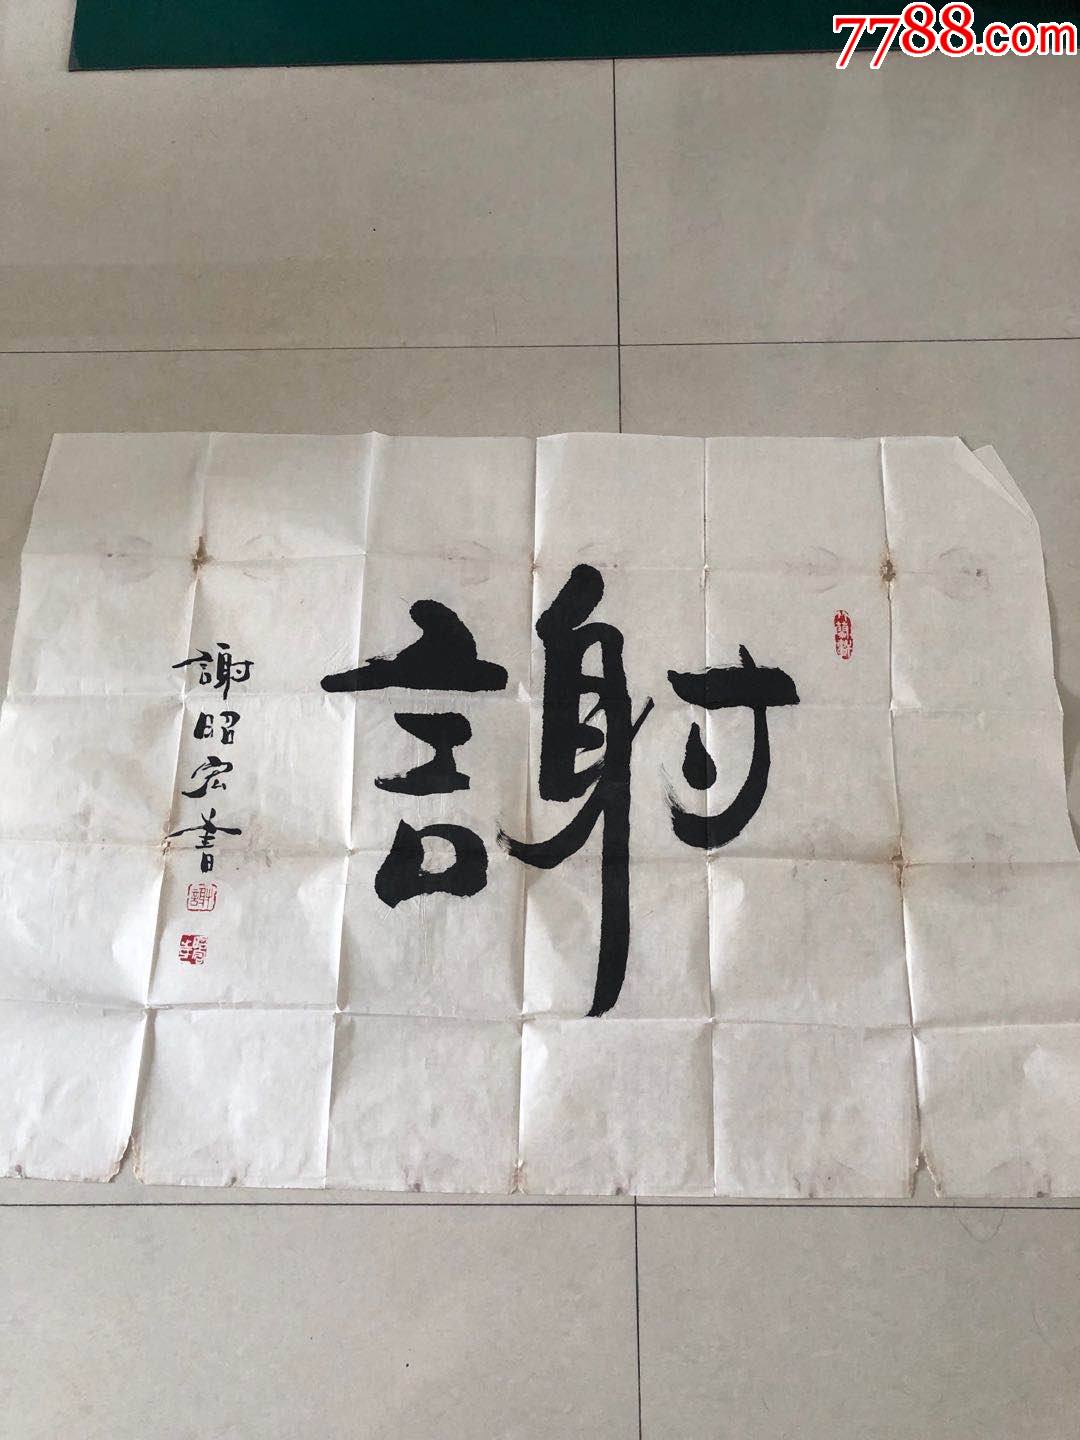 7788.com
謝
謝昭宏書
謝